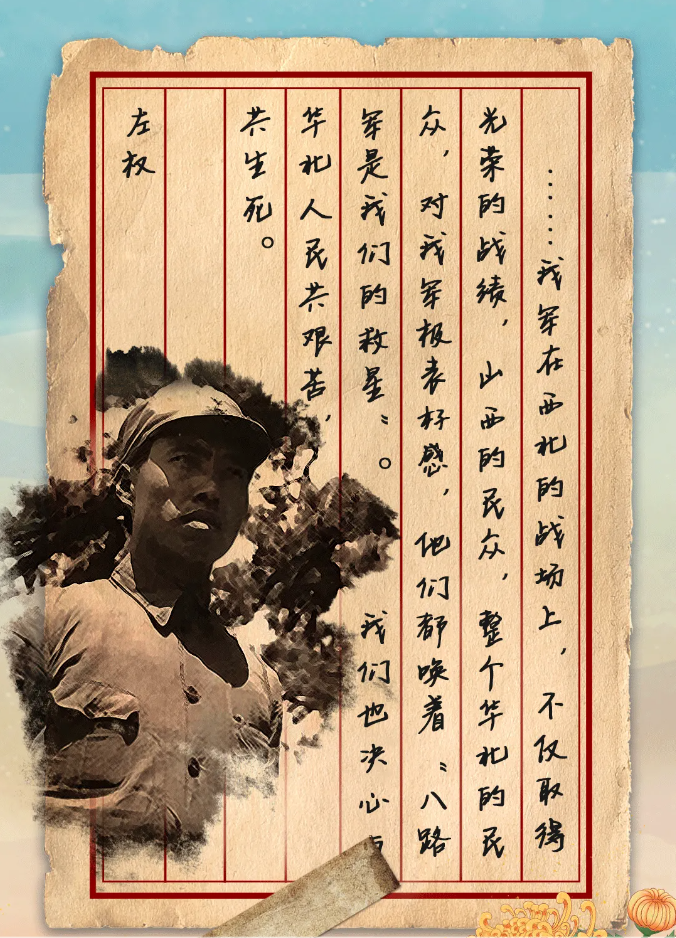 ……我军在西北的战场上，不仅取得
光荣的战绩，山西的民众，整个华北的民
众，对我军极表好感，他们都唤着“八路
军是我们的救星”。我们也决心与
华北人民共艰苦，
共生死。
左权